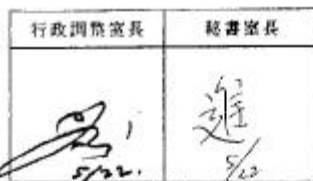 行政調整室長 秘書室長
進
5/22. 5/22